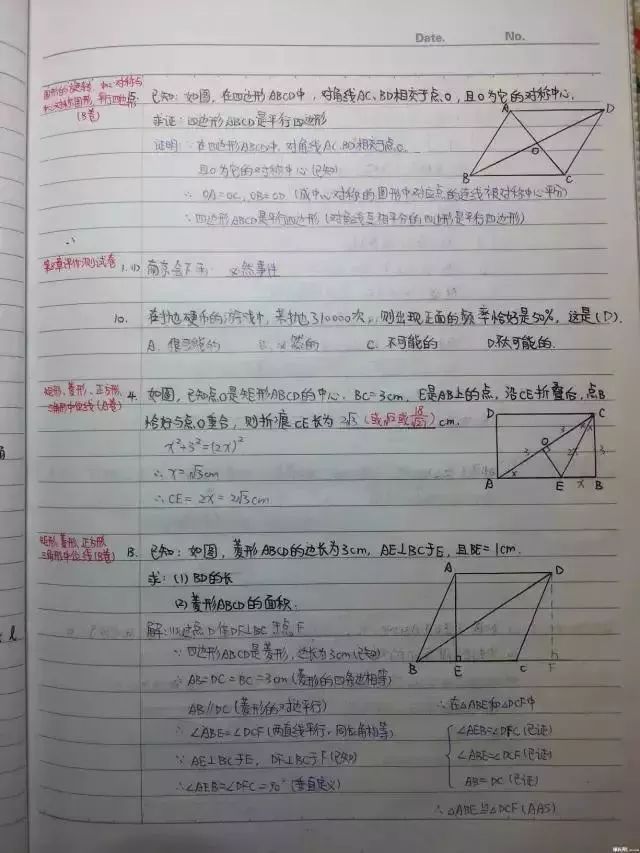 Date. No.
图形的旋转、中心对称与
中心对称图形、平行四边形
(B卷)
已知：如图，在四边形ABCD中，对角线AC、BD相交于点O，且O为它的对称中心.
求证：四边形ABCD是平行四边形
证明：∵在四边形ABCD中，对角线AC、BD相交于点O
且O为它的对称中心(已知)
∴OA=OC，OB=OD (成中心对称的图形中对应点的连线被对称中心平分)
∴四边形ABCD是平行四边形 (对角线互相平分的四边形是平行四边形)
A D
O
B C
第8章评价测试卷 1.(1) 南京会下雨 必然事件
10. 在抛硬币的游戏中，若抛10000次，则出现正面的频率恰好是50%，这是(D).
A. 很可能的 B. 必然的 C. 不可能的 D.不太可能的.
矩形、菱形、正方形、
三角形中位线(A卷)
4. 如图，已知点O是矩形ABCD的中心，BC=3cm，E是AB上的点，沿CE折叠后，点B
恰好与点O重合，则折痕CE长为 2√3 (或√12或18/√27) cm.
x²+3²=(2x)²
∴x=√3cm
∴CE=2x=2√3cm
D C
O
A E B
3 3 2x x x 3
矩形、菱形、正方形、
三角形中位线(B卷)
13. 已知：如图，菱形ABCD的边长为3cm，AE⊥BC于E，且BE=1cm.
求：(1) BD的长
(2) 菱形ABCD的面积.
解：(1)过点D作DF⊥BC于点F
∵四边形ABCD是菱形，边长为3cm(已知)
∴AB=DC=BC=3cm(菱形的四条边相等)
AB∥DC(菱形的对边平行)
∴∠ABE=∠DCF(两直线平行，同位角相等)
∵AE⊥BC于E，DF⊥BC于F(已知)
∴∠AEB=∠DFC=90°(垂直定义)
A D
B E C F
∴在△ABE和△DCF中
∠AEB=∠DFC(已证)
∠ABE=∠DCF(已证)
AB=DC(已证)
∴△ABE≌△DCF(AAS)